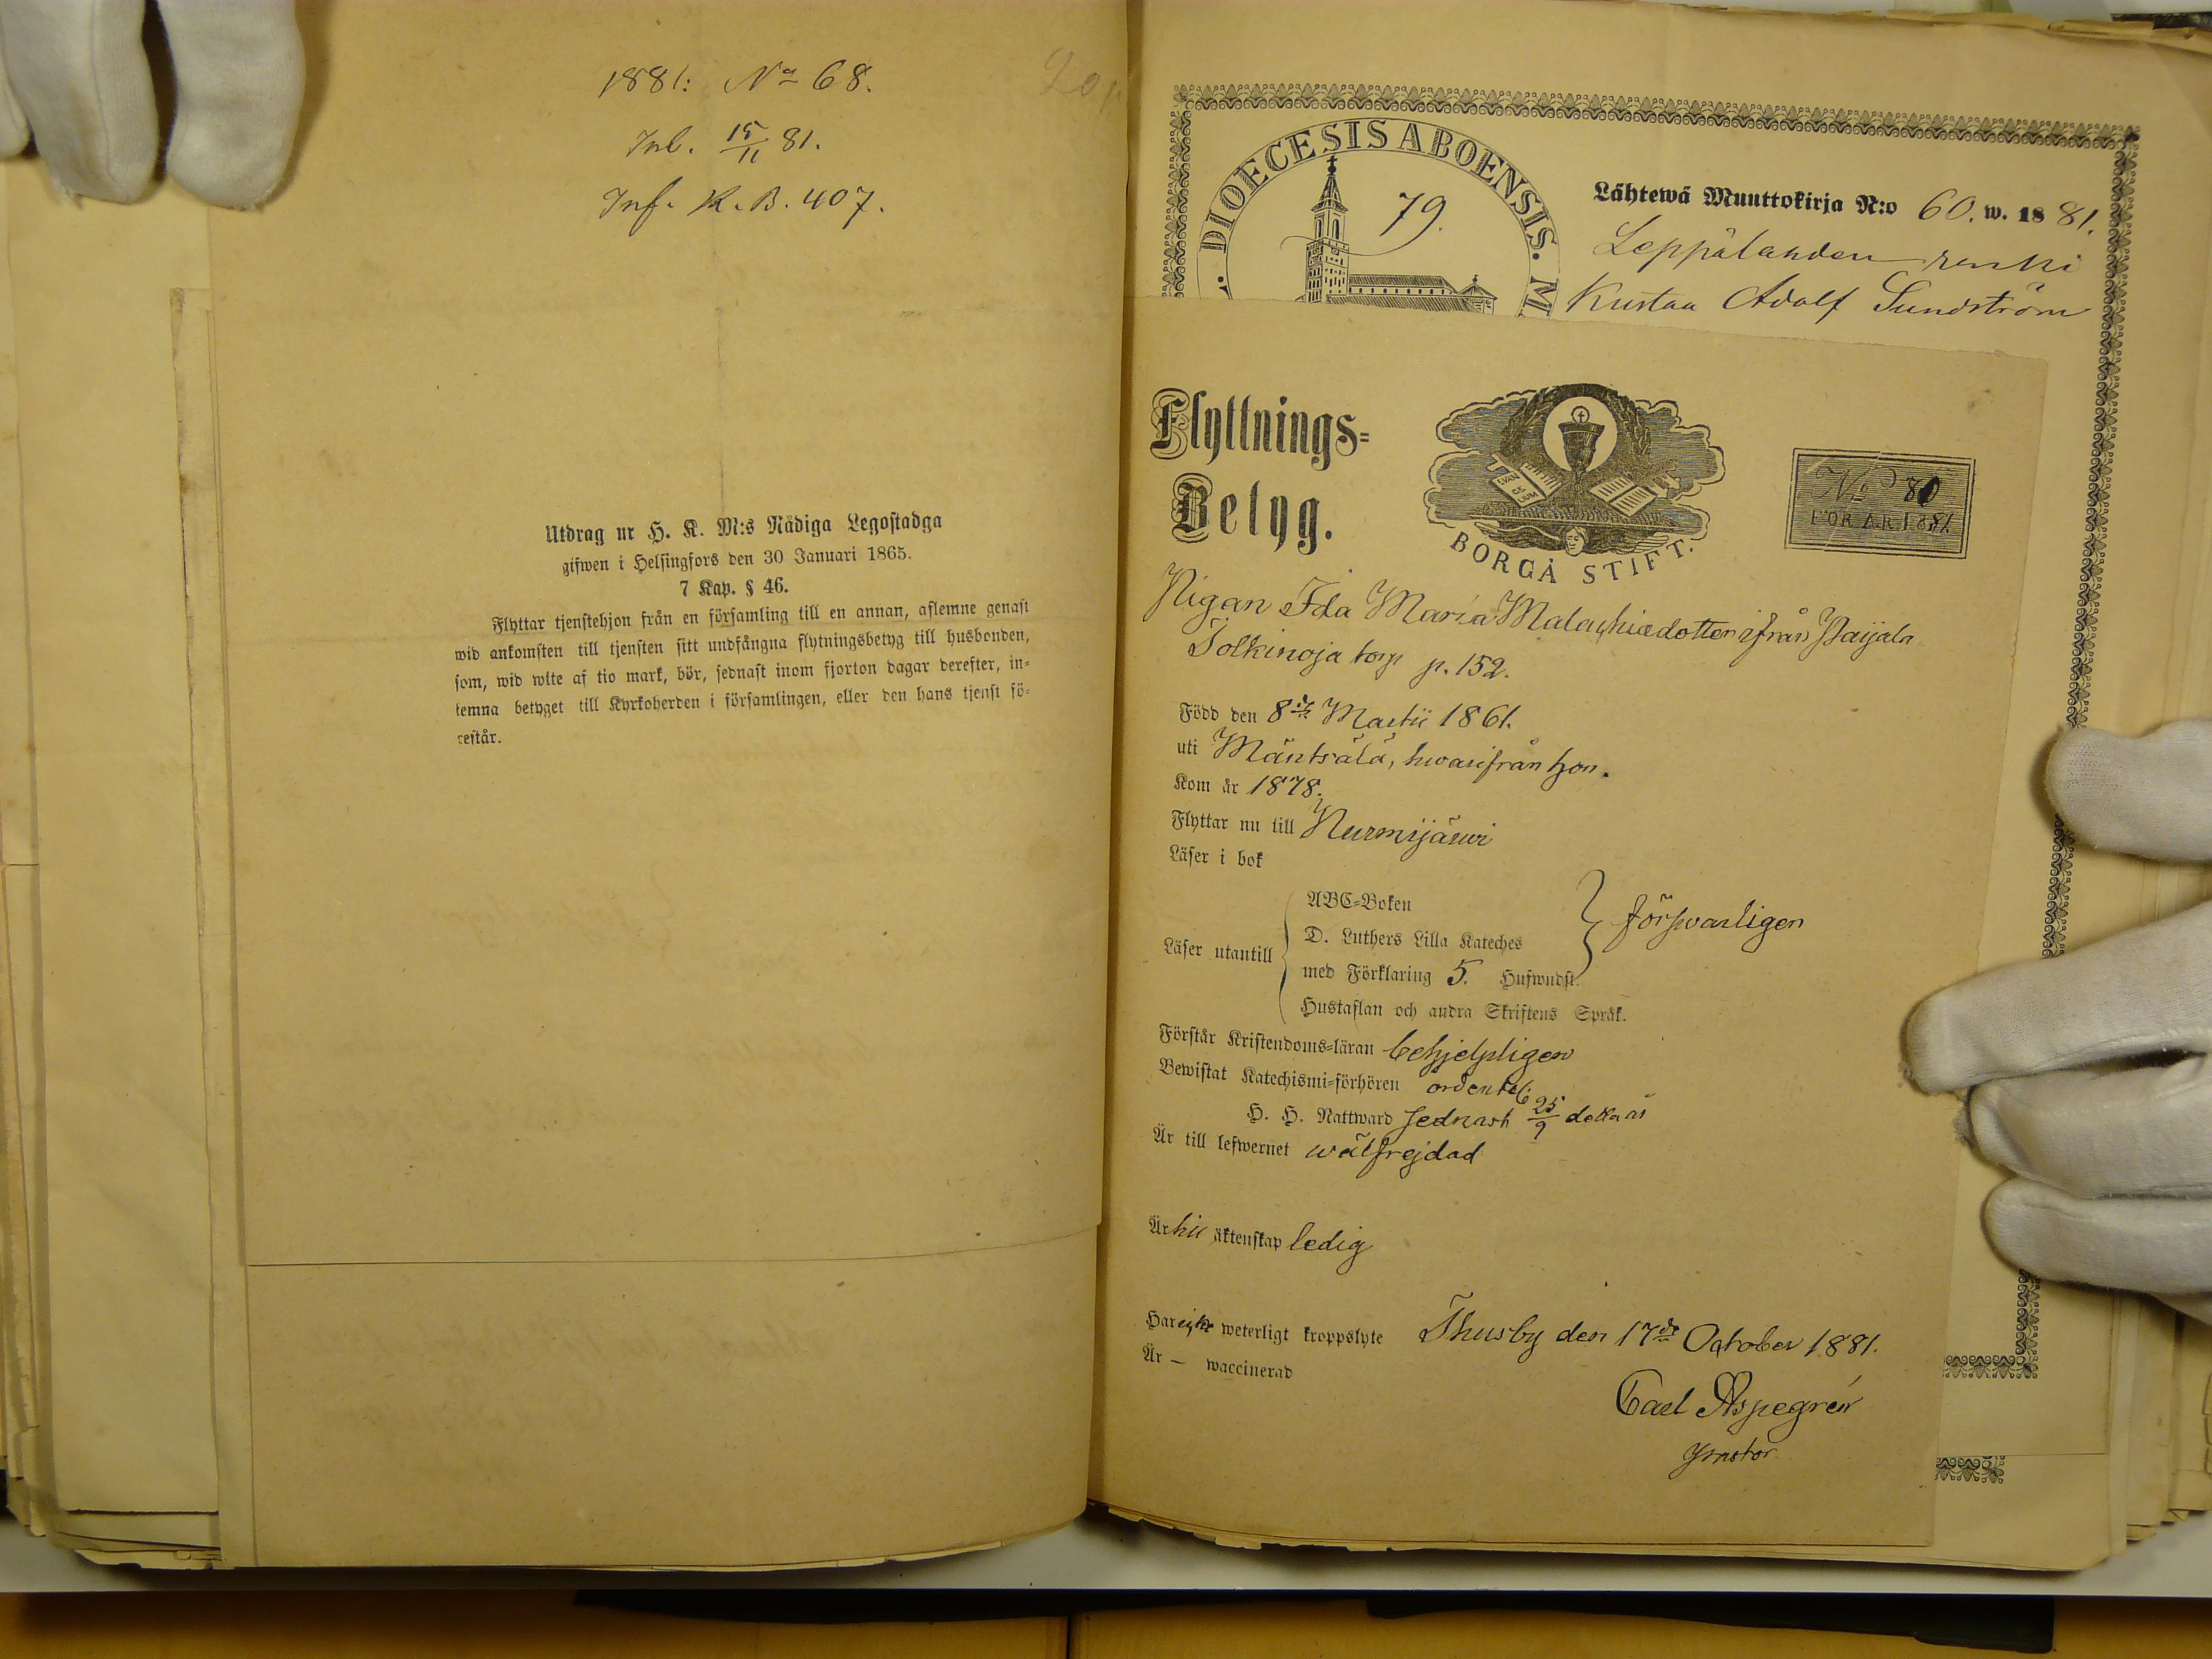 1881: No 68.
Inl. 15/11 81.
Inf. K. B. 407.
Utdrag ur H. K. M:s Nådiga Legostadga
gifwen i Helsingfors den 30 Januari 1865.
7 Kap. § 46.
Flyttar tjenstehjon från en församling till en annan, aflemne genast
wid ankomsten till tjensten sitt undfångna flytningsbetyg till husbonden,
som, wid wite af tio mark, bör, sednast inom fjorton dagar derefter, in-
lemna betyget till Kyrkoherden i församlingen, eller den hans tjenst fö-
restår.
DIOECESIS ABOENSIS. M.
79.
Lähtewä Muuttokirja N:o 60. w. 1881.
Leppälahden renki
Kustaa Adolf Sundström
Flyttnings-
Betyg.
EVAN
GE
LIUM
BORGÅ STIFT.
No 80
FÖR ÅR 1881.
Pigan Ida Maria Malachiadotter ifrån Paijala
Tolkinoja torp p. 152.
Född den 8de Martii 1861.
uti Mäntsälä, hwarifrån hon
Kom år 1878.
Flyttar nu till Nurmijärwi
Läser i bok
Läser utantill
ABC-Boken
D. Luthers Lilla Kateches
med Förklaring 5. Hufwudst.
Hustaflan och andra Skriftens Språk.
försvarligen
Förstår Kristendoms-läran behjelpligen
Bewistat Katechismi-förhören ordentl:
H. H. Nattward sednast 25/9 detta år
Är till lefwernet wälfrejdad
Är till äktenskap ledig
Har icke weterligt kroppslyte
Är — waccinerad
Thusby den 17de October 1881.
Carl Aspegrén